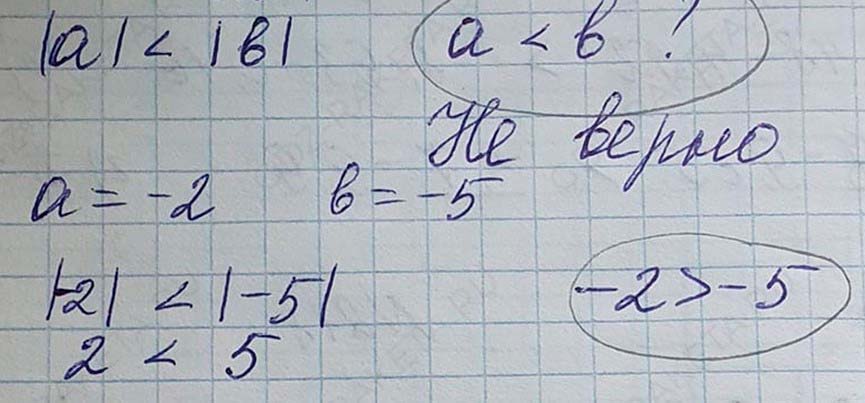 |а| < |в| а < в !
Не верно
а = -2 в = -5
|-2| < |-5| -2 > -5
2 < 5